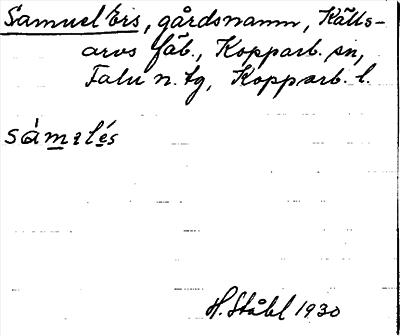 Samuel Ers, gårdsnamn, Källs-
arvs fäb., Kopparb. sn,
Falu n. tg, Kopparb. l.
sámɩlés
H. Ståhl 1930